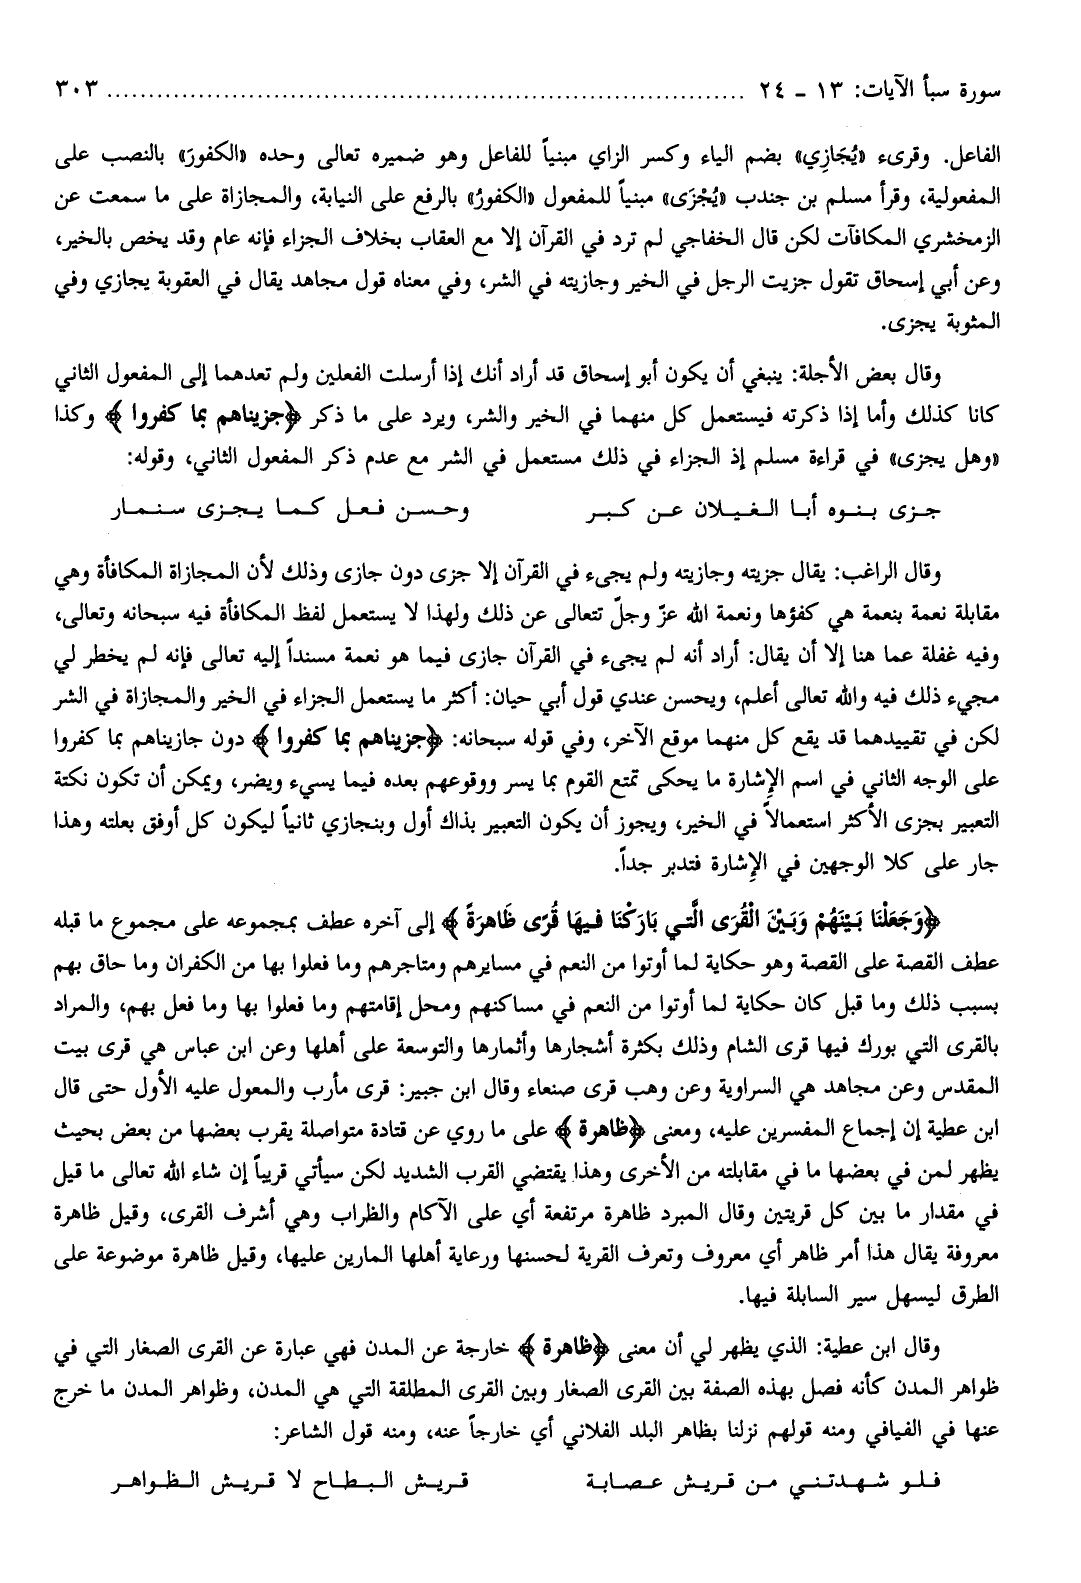 سورة سبأ الآيات: ١٣ ـ ٢٤ ................................................................................ ٣٠٣
الفاعل. وقرىء «يُجَازِي» بضم الياء وكسر الزاي مبنياً للفاعل وهو ضميره تعالى وحده «الكفورَ» بالنصب على
المفعولية، وقرأ مسلم بن جندب «يُجْزَى» مبنياً للمفعول «الكفورُ» بالرفع على النيابة، والمجازاة على ما سمعت عن
الزمخشري المكافآت لكن قال الخفاجي لم ترد في القرآن إلا مع العقاب بخلاف الجزاء فإنه عام وقد يخص بالخير،
وعن أبي إسحاق تقول جزيت الرجل في الخير وجازيته في الشر، وفي معناه قول مجاهد يقال في العقوبة يجازي وفي
المثوبة يجزى.
وقال بعض الأجلة: ينبغي أن يكون أبو إسحاق قد أراد أنك إذا أرسلت الفعلين ولم تعدهما إلى المفعول الثاني
كانا كذلك وأما إذا ذكرته فيستعمل كل منهما في الخير والشر، ويرد على ما ذكر ﴿جزيناهم بما كفروا﴾ وكذا
«وهل يجزى» في قراءة مسلم إذ الجزاء في ذلك مستعمل في الشر مع عدم ذكر المفعول الثاني، وقوله:
جـزى بـنـوه أبـا الـغـيـلان عـن كـبـر وحـسـن فـعـل كـمـا يـجـزى سـنـمـار
وقال الراغب: يقال جزيته وجازيته ولم يجىء في القرآن إلا جزى دون جازى وذلك لأن المجازاة المكافأة وهي
مقابلة نعمة بنعمة هي كفؤها ونعمة الله عزّ وجلّ تتعالى عن ذلك ولهذا لا يستعمل لفظ المكافأة فيه سبحانه وتعالى،
وفيه غفلة عما هنا إلا أن يقال: أراد أنه لم يجىء في القرآن جازى فيما هو نعمة مسنداً إليه تعالى فإنه لم يخطر لي
مجيء ذلك فيه والله تعالى أعلم، ويحسن عندي قول أبي حيان: أكثر ما يستعمل الجزاء في الخير والمجازاة في الشر
لكن في تقييدهما قد يقع كل منهما موقع الآخر، وفي قوله سبحانه: ﴿جزيناهم بما كفروا﴾ دون جازيناهم بما كفروا
على الوجه الثاني في اسم الإشارة ما يحكى تمتع القوم بما يسر ووقوعهم بعده فيما يسيء ويضر، ويمكن أن تكون نكتة
التعبير بجزى الأكثر استعمالاً في الخير، ويجوز أن يكون التعبير بذاك أول وبنجازي ثانياً ليكون كل أوفق بعلته وهذا
جار على كلا الوجهين في الإشارة فتدبر جداً.
﴿وَجَعَلْنَا بَيْنَهُمْ وَبَيْنَ الْقُرَى الَّتي بَارَكْنَا فيهَا قُرًى ظَاهرَةً﴾ إلى آخره عطف بمجموعه على مجموع ما قبله
عطف القصة على القصة وهو حكاية لما أوتوا من النعم في مسايرهم ومتاجرهم وما فعلوا بها من الكفران وما حاق بهم
بسبب ذلك وما قبل كان حكاية لما أوتوا من النعم في مساكنهم ومحل إقامتهم وما فعلوا بها وما فعل بهم، والمراد
بالقرى التي بورك فيها قرى الشام وذلك بكثرة أشجارها وأثمارها والتوسعة على أهلها وعن ابن عباس هي قرى بيت
المقدس وعن مجاهد هي السراوية وعن وهب قرى صنعاء وقال ابن جبير: قرى مأرب والمعول عليه الأول حتى قال
ابن عطية إن إجماع المفسرين عليه، ومعنى ﴿ظاهرة﴾ على ما روي عن قتادة متواصلة يقرب بعضها من بعض بحيث
يظهر لمن في بعضها ما في مقابلته من الأخرى وهذا يقتضي القرب الشديد لكن سيأتي قريباً إن شاء الله تعالى ما قيل
في مقدار ما بين كل قريتين وقال المبرد ظاهرة مرتفعة أي على الآكام والظراب وهي أشرف القرى، وقيل ظاهرة
معروفة يقال هذا أمر ظاهر أي معروف وتعرف القرية لحسنها ورعاية أهلها المارين عليها، وقيل ظاهرة موضوعة على
الطرق ليسهل سير السابلة فيها.
وقال ابن عطية: الذي يظهر لي أن معنى ﴿ظاهرة﴾ خارجة عن المدن فهي عبارة عن القرى الصغار التي في
ظواهر المدن كأنه فصل بهذه الصفة بين القرى الصغار وبين القرى المطلقة التي هي المدن، وظواهر المدن ما خرج
عنها في الفيافي ومنه قولهم نزلنا بظاهر البلد الفلاني أي خارجاً عنه، ومنه قول الشاعر:
فـلـو شـهـدتـنـي مـن قـريـش عـصـابـة قـريـش الـبـطـاح لا قـريـش الـظـواهـر